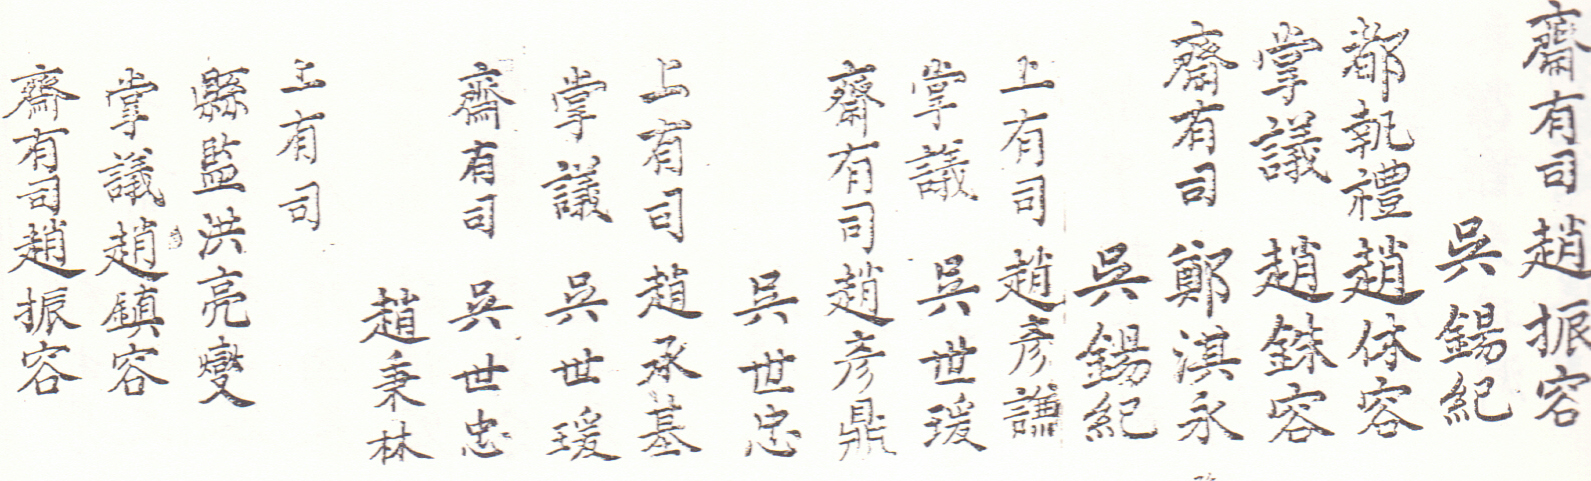 齋有司趙振容
吳錫紀
都執禮趙休容
掌議趙銖容
齋有司鄭淇永
吳錫紀
上有司趙彥謙
掌議吳世瑗
齋有司趙彥鼎
吳世忠
上有司趙承基
掌議吳世瑗
齋有司吳世忠
趙秉林
上有司
縣監洪亮燮
掌議趙鎮容
齋有司趙振容